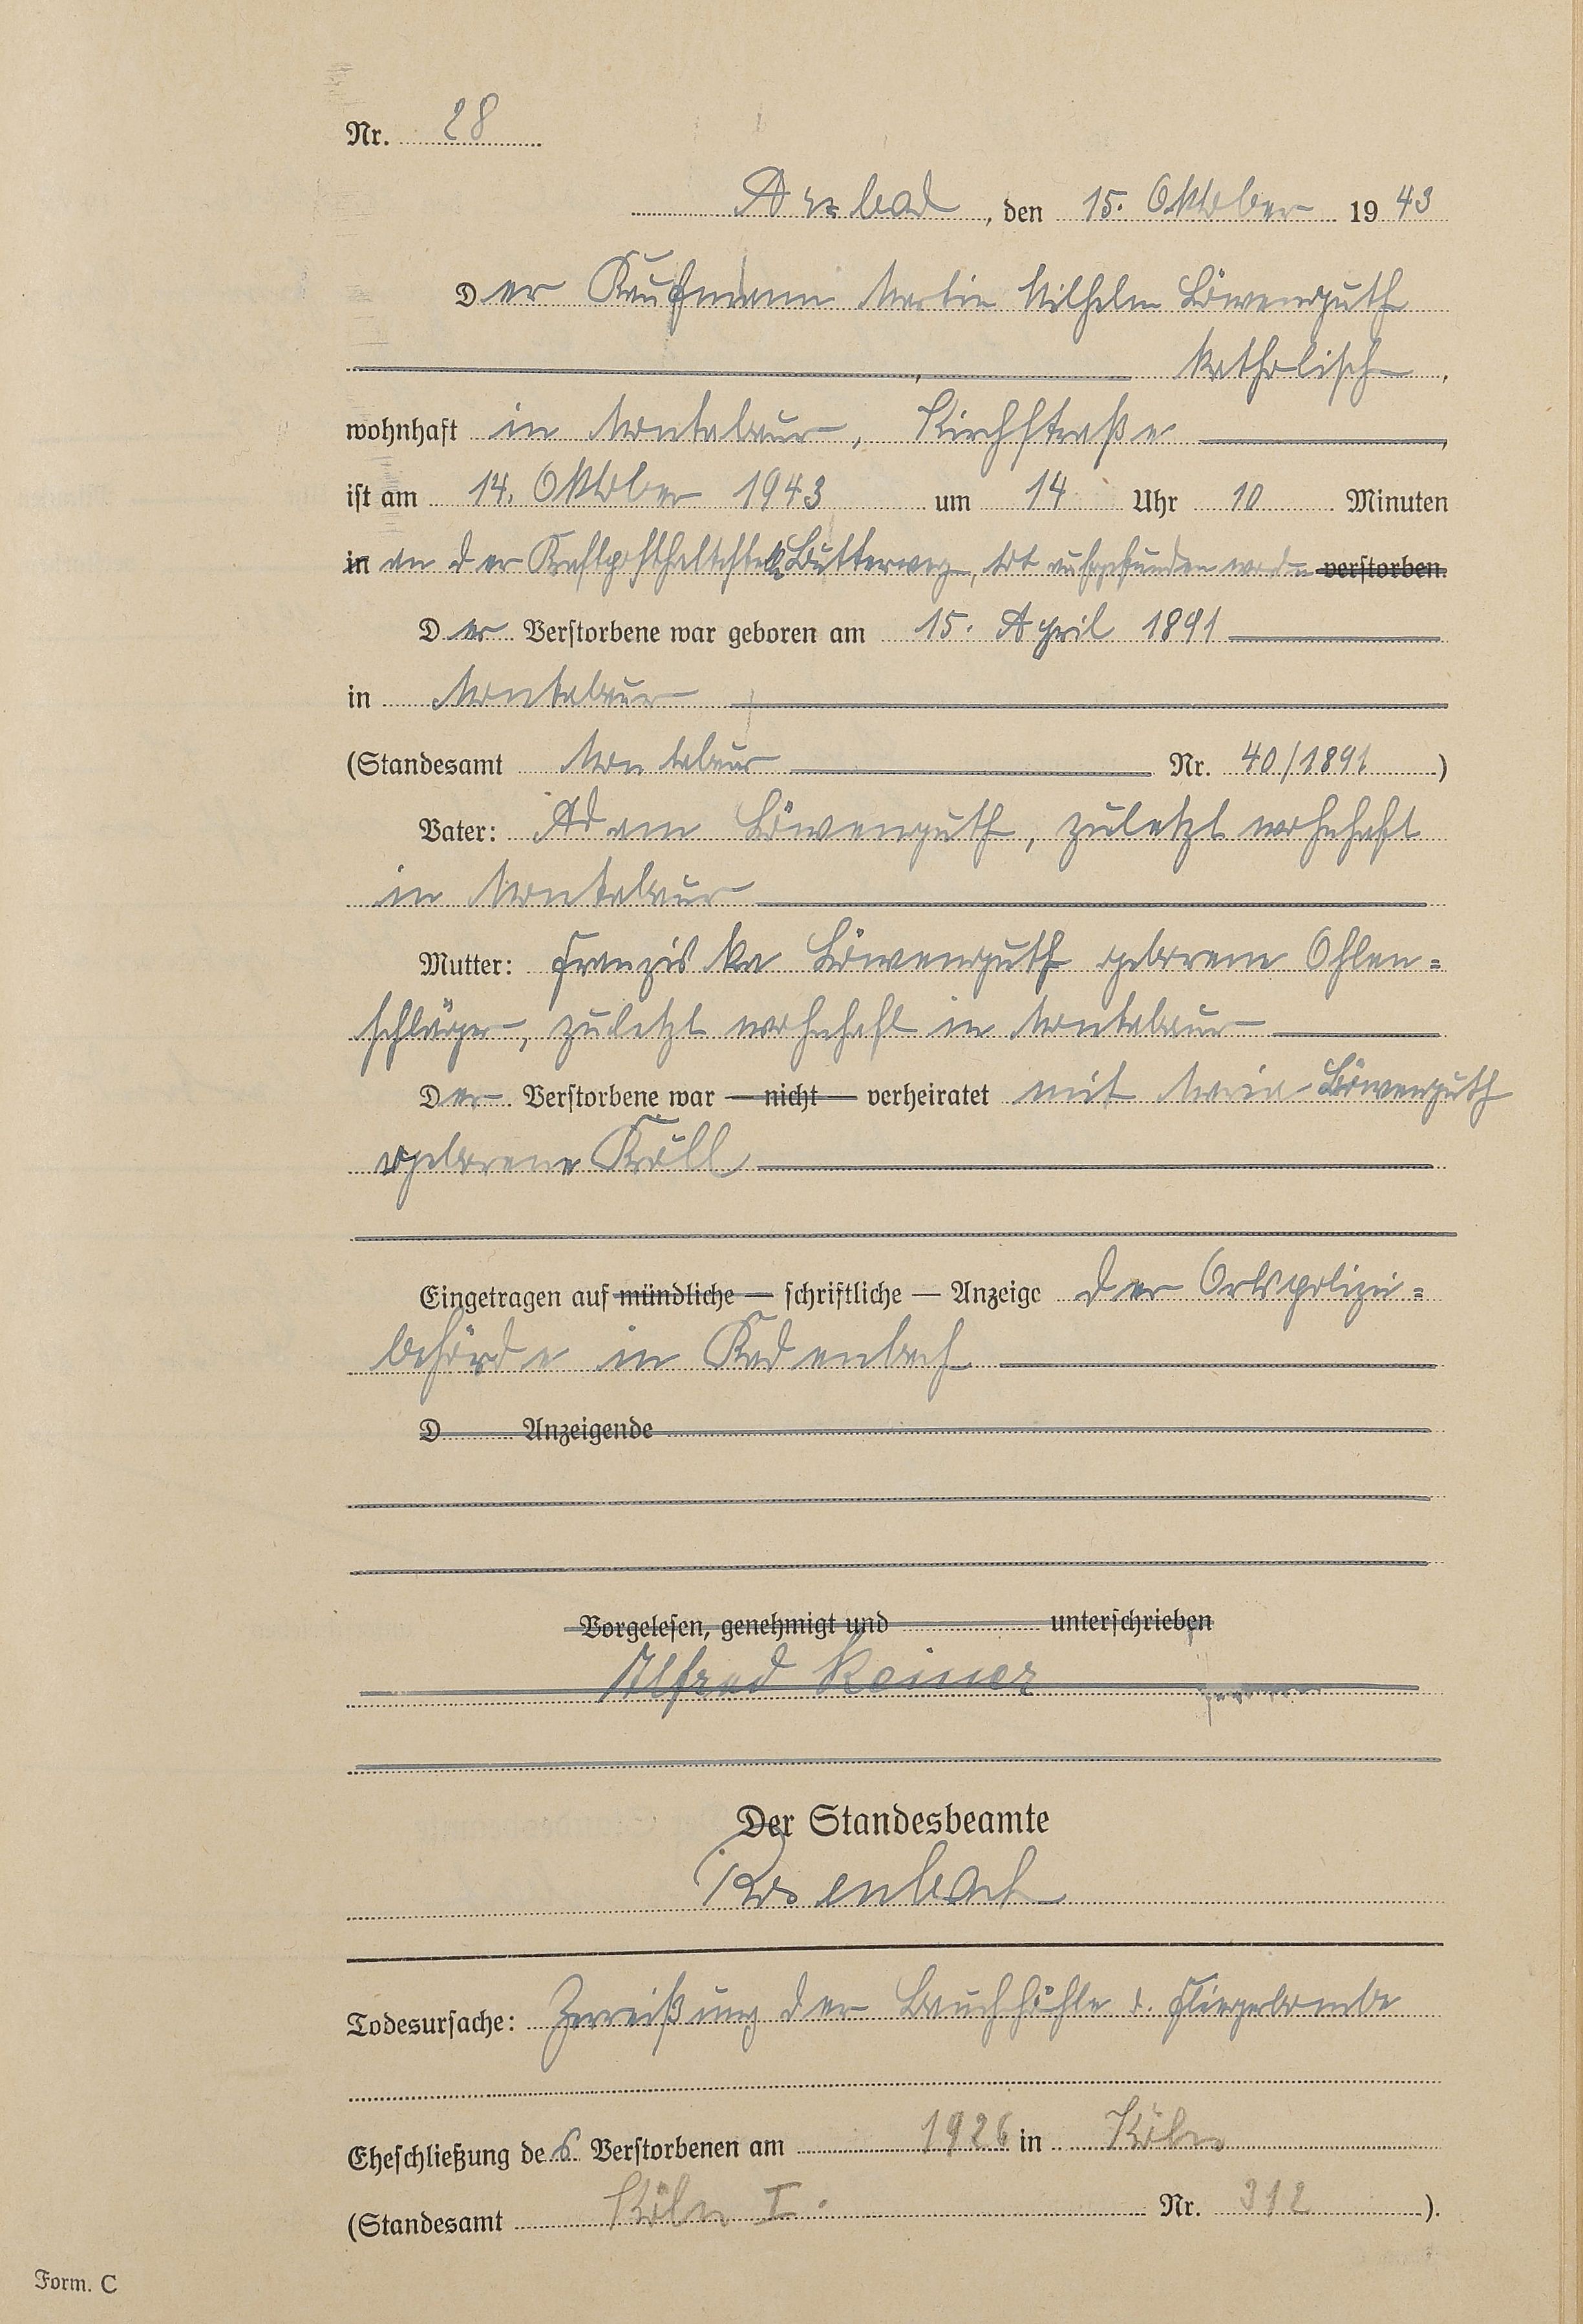 Nr. 28
Arzbach, den 15. Oktober 1943
Der Kaufmann Martin Wilhelm Löwenguth
katholisch,
wohnhaft in Montabaur, Kirchstraße,
ist am 14. Oktober 1943 um 14 Uhr 10 Minuten
in an der Kraftposthaltestelle Butterweg, tot aufgefunden worden verstorben.
Der Verstorbene war geboren am 15. April 1891
in Montabaur
(Standesamt Montabaur Nr. 40/1891)
Vater: Adam Löwenguth, zuletzt wohnhaft
in Montabaur
Mutter: Franziska Löwenguth geborene Ohlen=
schläger, zuletzt wohnhaft in Montabaur
Der Verstorbene war — nicht — verheiratet mit Maria Löwenguth
geborene Kröll
Eingetragen auf mündliche — schriftliche — Anzeige der Ortspolizei=
behörde in Kadenbach
D Anzeigende
Vorgelesen, genehmigt und unterschrieben
Alfred Reiner
Der Standesbeamte
Rosenbach
Todesursache: Zerreißung der Bauchhöhle d. Fliegerbombe
Eheschließung des Verstorbenen am 1926 in Köln
(Standesamt Köln I. Nr. 312).
Form. C